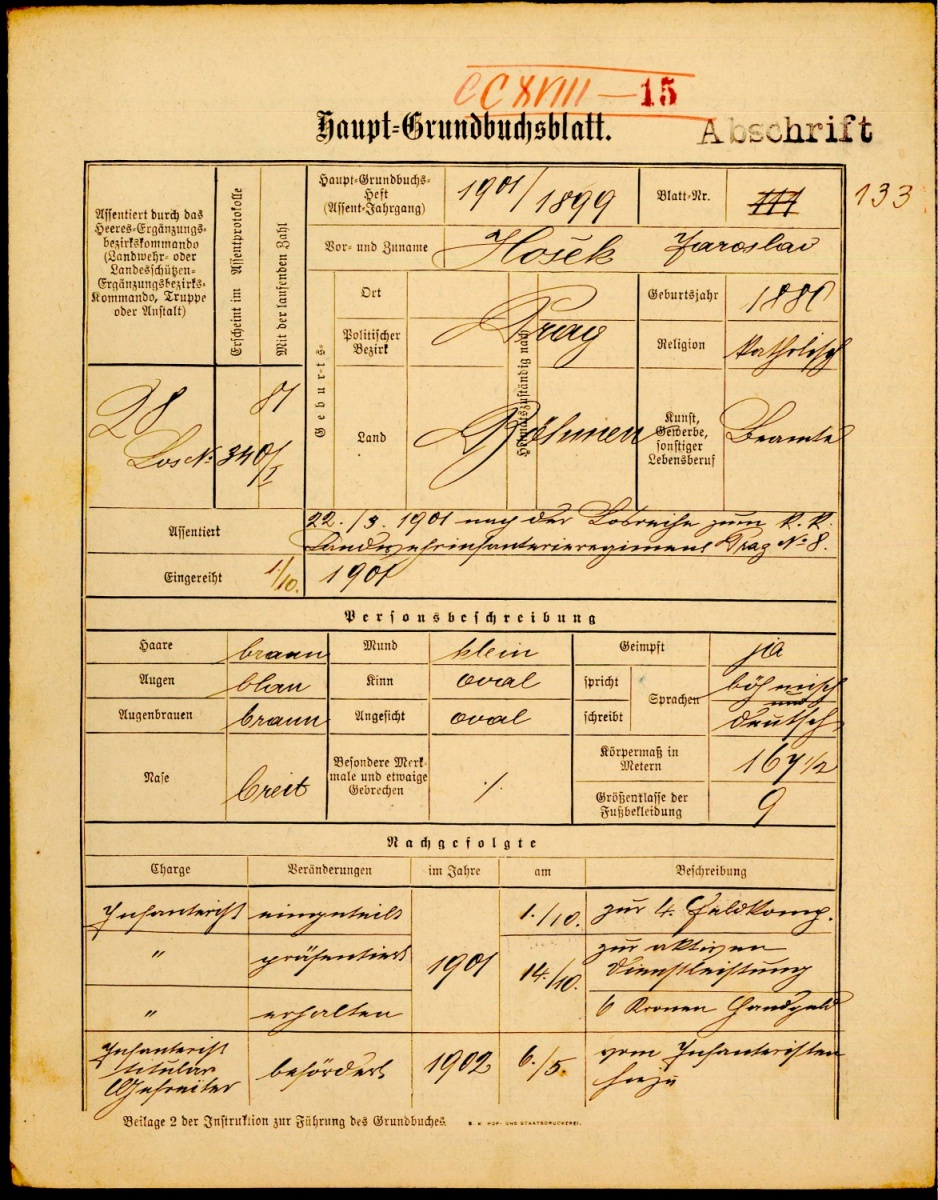 CCXVIII — 15
Haupt=Grundbuchsblatt.
Abschrift
Assentiert durch das
Heeres-Ergänzungs-
bezirkskommando
(Landwehr- oder
Landesschützen-
Ergänzungsbezirks-
Kommando, Truppe
oder Anstalt)
Erscheint im Assentprotokolle
Mit der laufenden Zahl
Haupt=Grundbuchs-
Heft
(Assent-Jahrgang)
1901/1899
Blatt-Nr.
133
Vor- und Zuname
Hošek Jaroslav
Geburts-
Ort
Politischer
Bezirk
Land
Heimatszuständig nach
Prag
Böhmen
Geburtsjahr
1880
Religion
katholisch
Kunst,
Gewerbe,
sonstiger
Lebensberuf
Beamte
28
81
Los Nr. 340/I
Assentiert
22./3. 1901 nach der Losreihe zum k. k.
Landwehrinfanterieregiment Prag No 8.
Eingereiht
1/10. 1901
Personsbeschreibung
Haare
braun
Mund
klein
Geimpft
ja
Augen
blau
Kinn
oval
spricht
schreibt
Sprachen
böhmisch
und
deutsch
Augenbrauen
braun
Angesicht
oval
Nase
breit
Besondere Merk-
male und etwaige
Gebrechen
./.
Körpermaß in
Metern
167 1/2
Größenklasse der
Fußbekleidung
9
Nachgefolgte
Charge
Veränderungen
im Jahre
am
Beschreibung
Infanterist eingeteilt 1./10. zur 4. Feldkomp.
" präsentiert 1901 14./10. zur aktiven
Dienstleistung
" erhalten 6 Kronen Handgeld
Infanterist
titular
Gefreiter
befördert 1902 6./5. vom Infanteristen
hiezu
Beilage 2 der Instruktion zur Führung des Grundbuches.
K. K. HOF- UND STAATSDRUCKEREI.